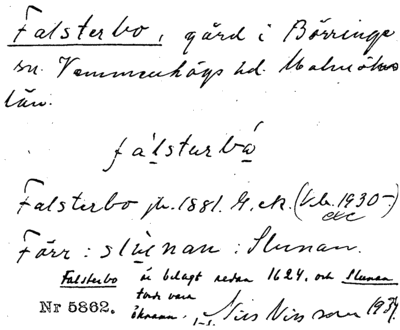 Falsterbo, gård i Börringe
sn. Vemmenhögs hd. Malmöhus
län.
fàlsturbá
Falsterbo jb. 1881. G. ek. (Veb. 1930-)
etc
Förr: slùenan: Slunan.
Falsterbo är belagt redan 1624, och Slunan
torde vara
öknamn.
Nr 5862. Nils Nilsson 1937.